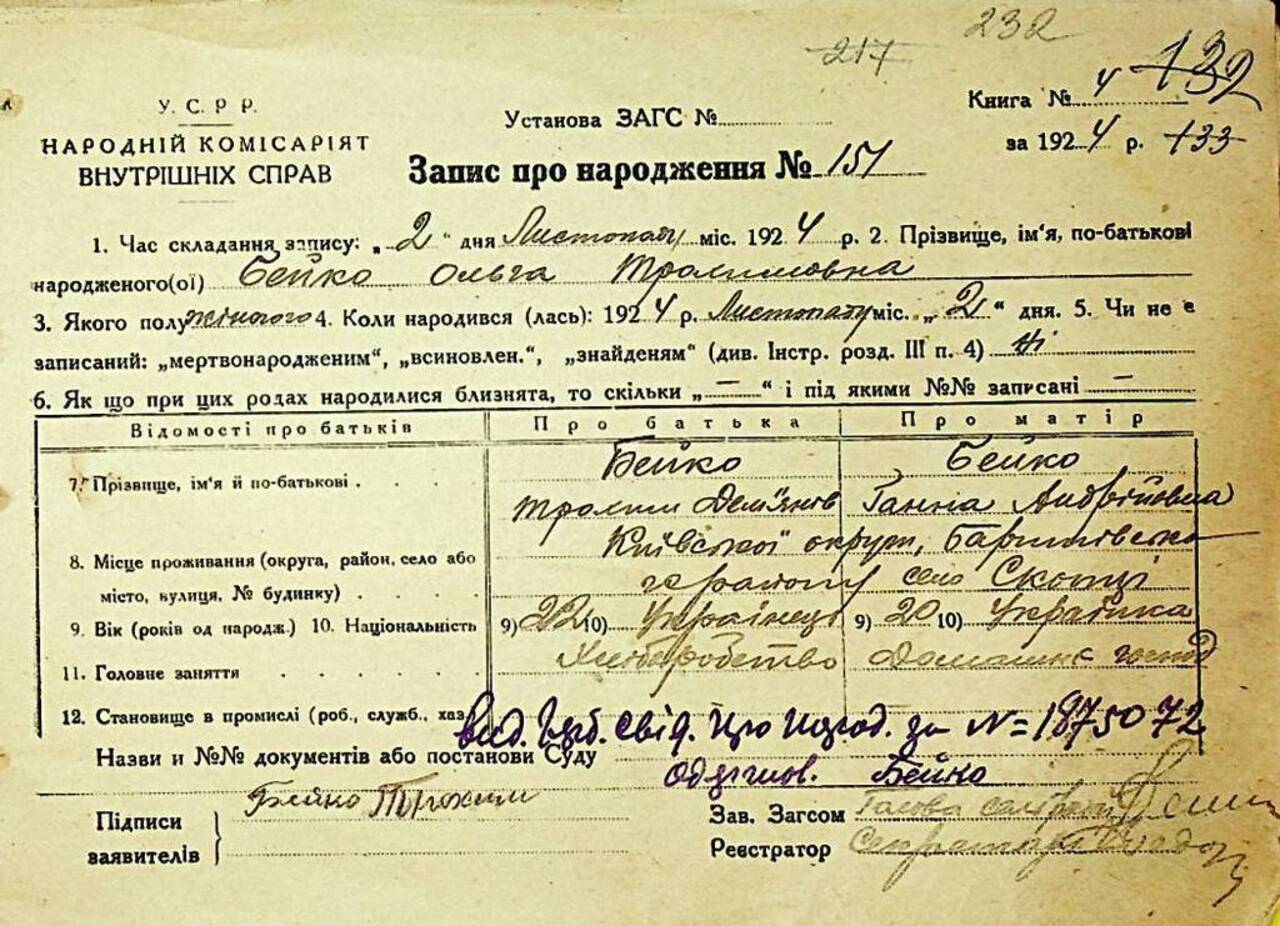 232
217
У. С. Р Р.
НАРОДНІЙ КОМІСАРІЯТ
ВНУТРІШНІХ СПРАВ
Установа ЗАГС №
Книга № 4 132
за 1924 р. 133
Запис про народження № 151
1. Час складання запису: „2" дня Листопаду міс. 1924 р. 2. Прізвище, ім'я, по-батькові
народженого(ої) Бейко Ольга Трохимовна
3. Якого полу жіночого 4. Коли народився (лась): 1924 р. Листопаду міс. „2" дня. 5. Чи не є
записаний: „мертвонародженим", „всиновлен.", „знайденям" (див. Інстр. розд. III п. 4) Ні
6. Як що при цих родах народилися близнята, то скільки „—" і під якими №№ записані —
Відомості про батьків Про батька Про матір
7. Прізвище, ім'я й по-батькові . . . Бейко Бейко
Дем'янів Ганна Андрійовна
8. Місце проживання (округа, район, село або Київської округи,
місто, вулиця, № будинку) . . . . району село Скопці
9. Вік (років од народж.) 10. Національність 9) 22 10) Українець 9) 20 10) Українка
11. Головне заняття . . . . . Хліборобство Домашнє
12. Становище в промислі (роб., служб., хаз.
вид. Свід. про народ. за №=1875072
Назви и №№ документів або постанови Суду
Бейко
Підписи
заявителів
Бейко Трохим
Зав. Загсом Голова
Реєстратор Секретарь